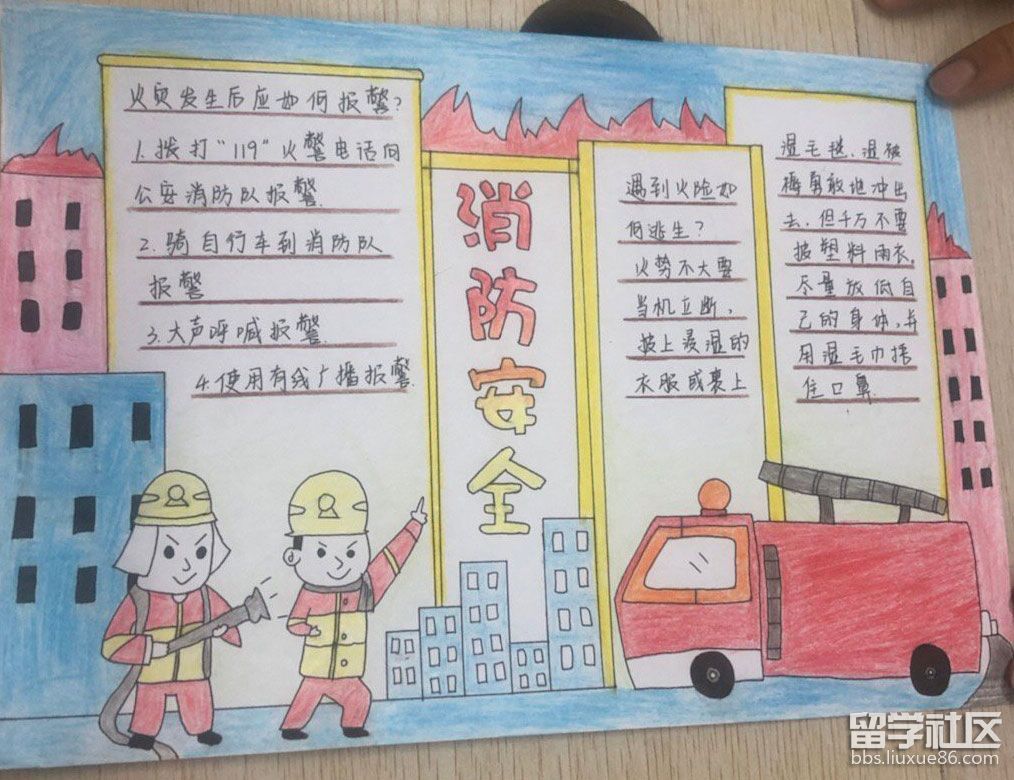 火灾发生后应如何报警?
1.拨打"119"火警电话向
公安消防队报警.
2.骑自行车到消防队
报警
3.大声呼喊报警.
4.使用有线广播报警.
消防安全
遇到火险如
何逃生?
火势不大要
当机立断,
披上浸湿的
衣服或裹上
湿毛毯、湿被
褥勇敢地冲出
去,但千万不要
披塑料雨衣,
尽量放低自
己的身体,并
用湿毛巾捂
住口鼻.
留学社区
bbs.liuxue86.com